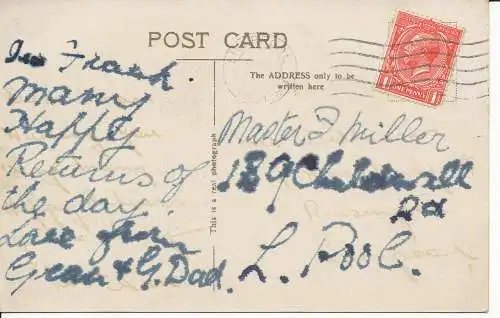 POST CARD
The ADDRESS only to be
written here
This is a real photograph
To Frank
Many
Happy
Returns of
the day.
Love from
Gran & G. Dad.
Master F Miller
189 Childwall
Rd
L. Pool.
ONE PENNY